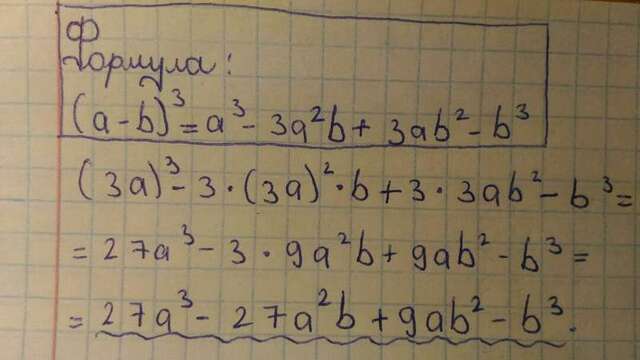 Формула:
(a-b)³=a³-3a²b+3ab²-b³
(3a)³-3·(3a)²·b+3·3ab²-b³=
=27a³-3·9a²b+9ab²-b³=
=27a³-27a²b+9ab²-b³.